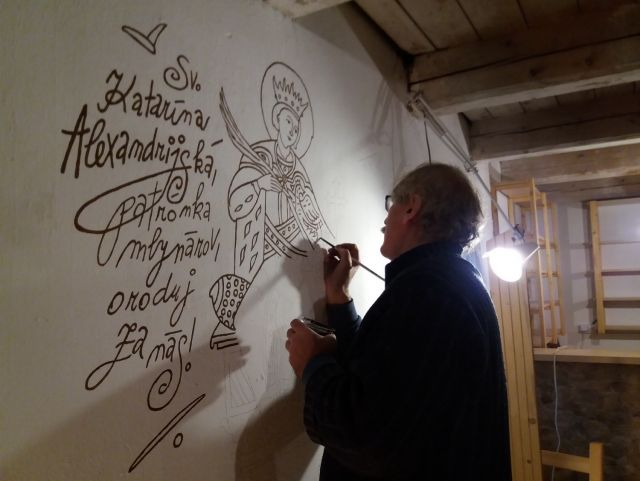 Sv.
Katarína
Alexandrijská,
patronka
mlynárov,
oroduj
za nás!